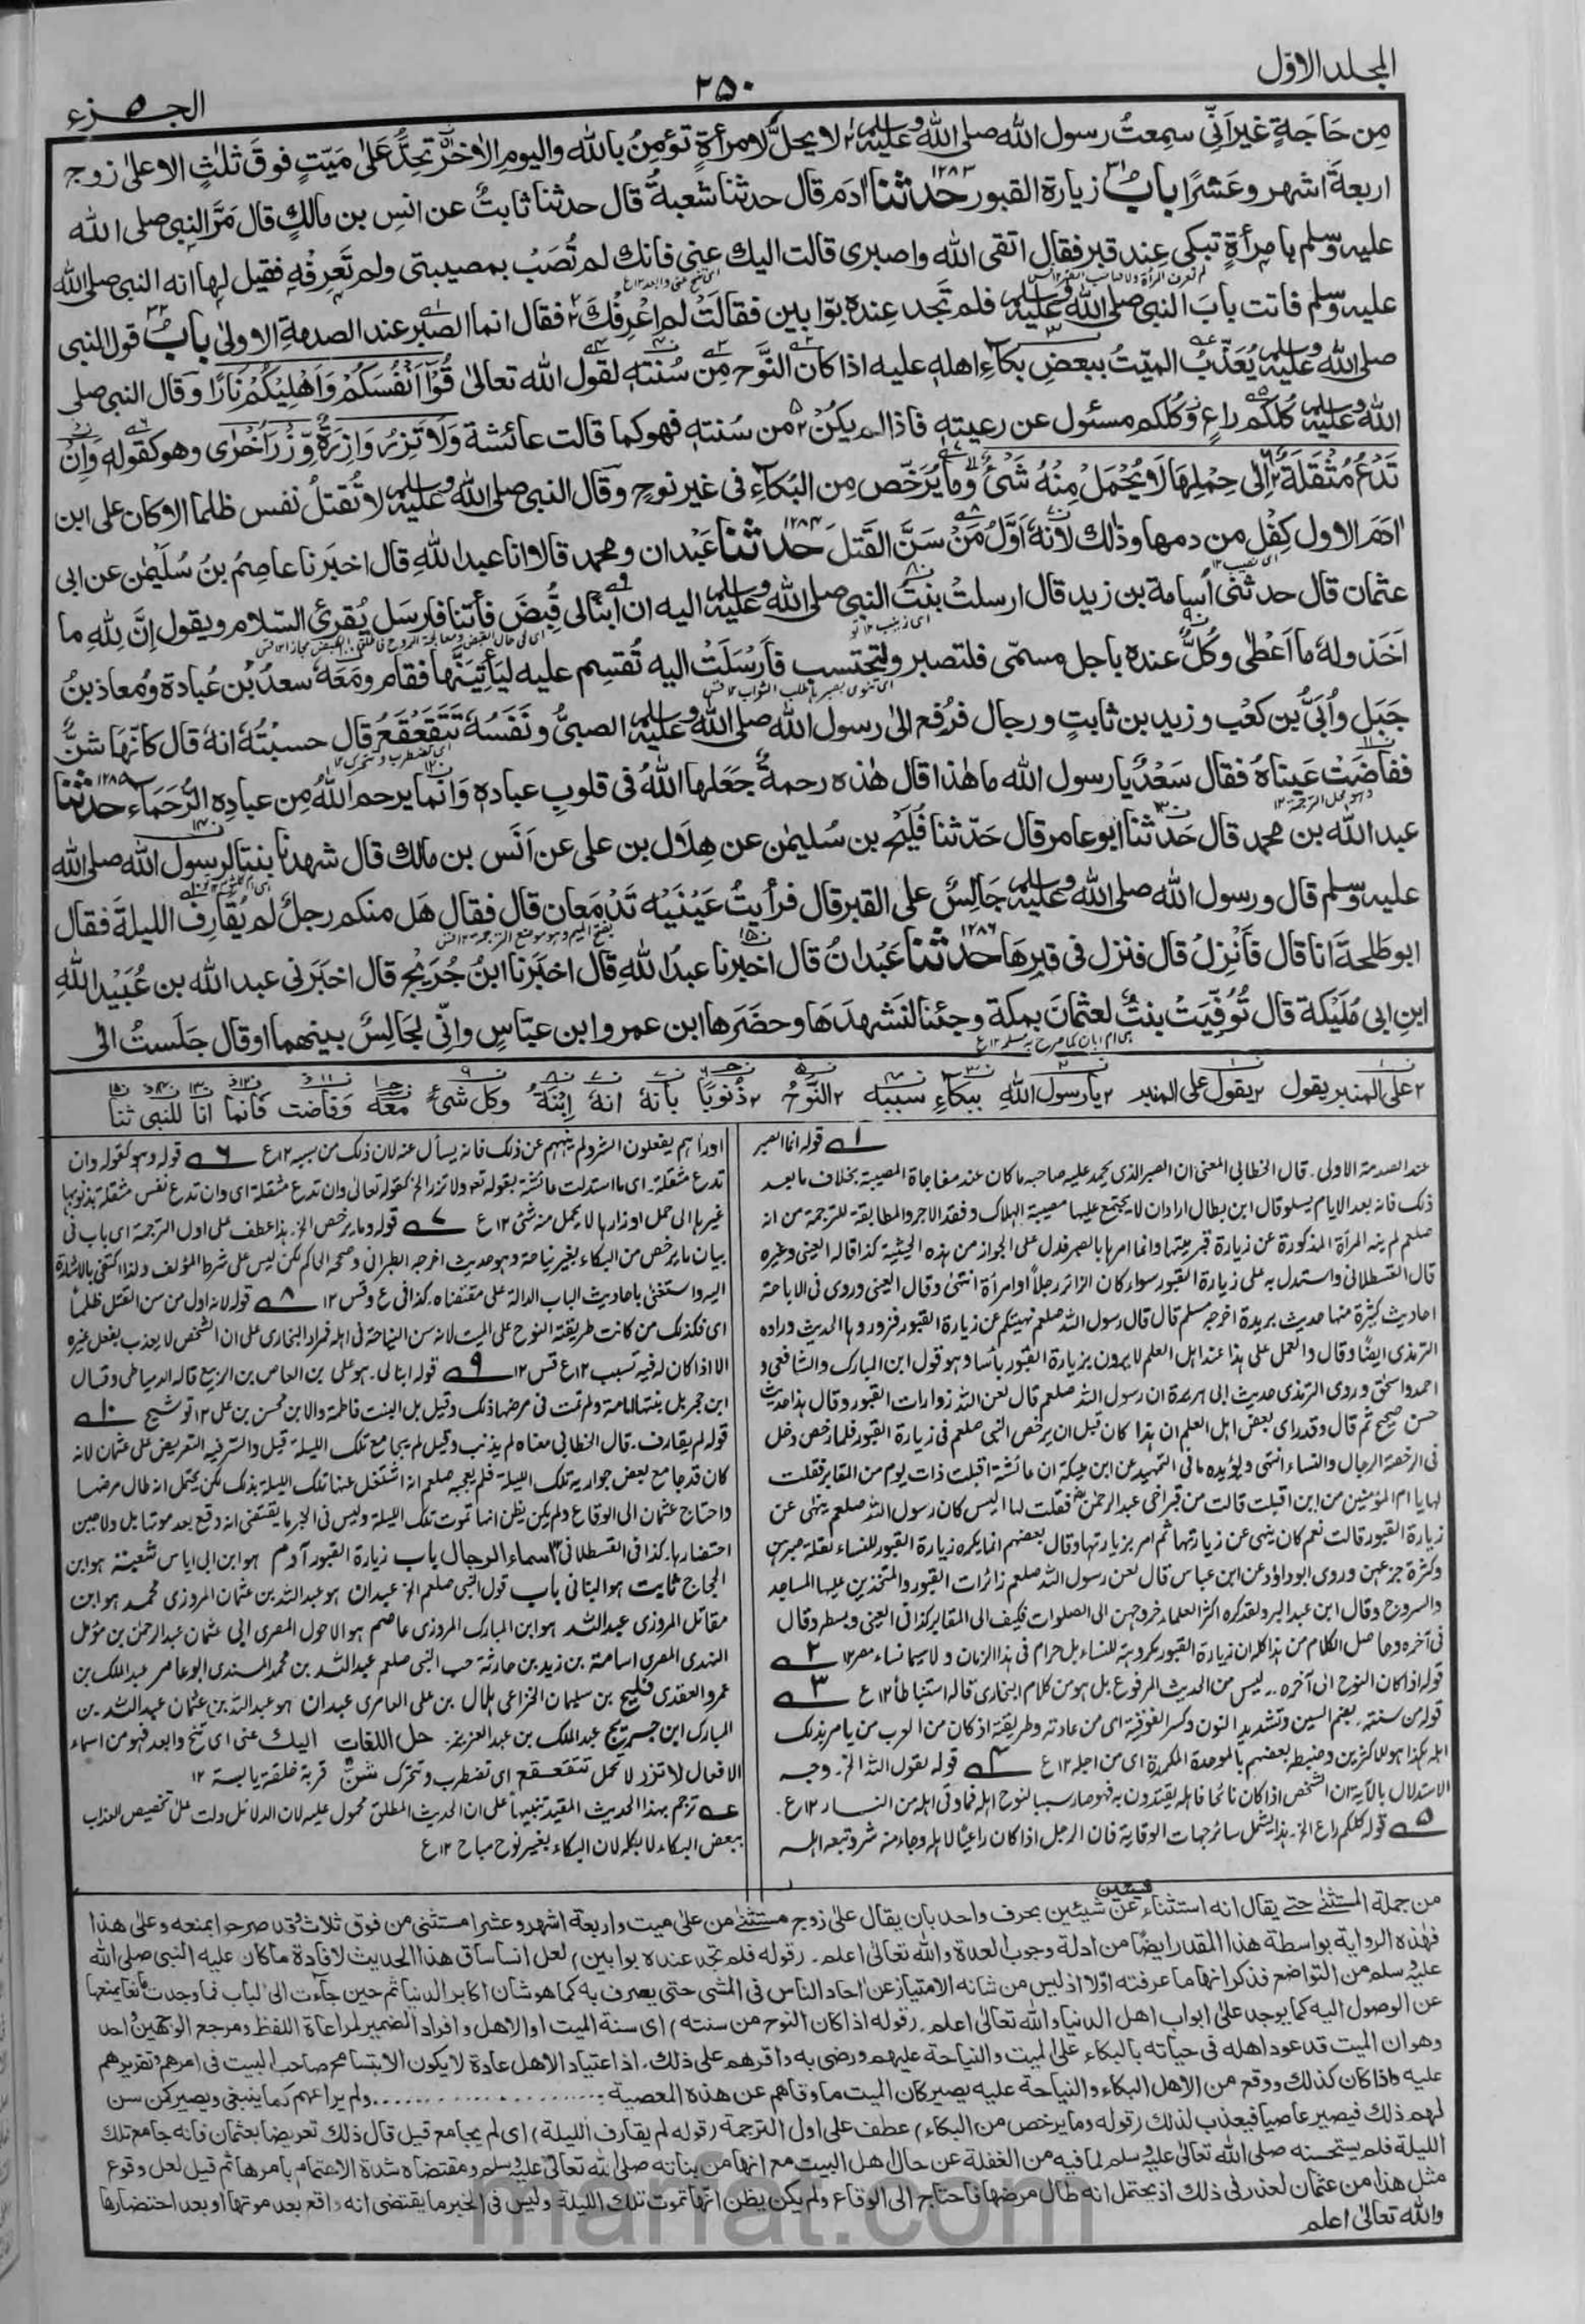 المجلد الاول
٢٥٠
الجزء ٥
من حَاجَةٍ غيرَ اَنِّي سمِعتُ رسول الله صلى الله عليه وسلم لا يحلُّ لامرأةٍ تؤمِنُ بالله واليومِ الاٰخر تحِدُّ عَلىٰ مَيّتٍ فوقَ ثلٰثٍ الا علىٰ زوج
اربعةَ اشهر وعَشرًا باب زيارة القبور ١٢٨٣ حدثنا اٰدم قال حدثنا شعبةُ قال حدثنا ثابتٌ عن انسِ بن مالكٍ قال مَرَّ النبي صلى الله
عليه وسلم بامرأةٍ تبكي عِند قبرٍ فقال اتقي الله واصبري قالت اليك عني فانك لم تُصَبْ بمصيبتي ولم تَعرِفْهِ فقيل لها انه النبي صلى الله
عليه وسلم فاتت بابَ النبي صلى الله عليه وسلم فلم تجد عِنده بوّابين فقالتْ لم اعْرِفْكَ فقال انما الصبر عند الصدمةِ الاولىٰ باب ٣٢ قول النبي
صلى الله عليه وسلم يُعَذَّبُ الميّتُ ببعضِ بكاءِ اهلهٖ عليه اذا كان النَّوح مِن سُنتهٖ لقول الله تعالىٰ قُوْٓا اَنْفُسَكُمْ وَاَهْلِيْكُمْ نَارًا وقال النبي صلى
الله عليه وسلم كُلكم راعٍ وكُلكم مسئول عن رعيتهٖ فاذا لم يكنْ من سُنتهٖ فهو كما قالت عائشة وَلَا تَزِرُ وَازِرَةٌ وِّزْرَ اُخْرٰى وهو كقوله وَاِنْ
تَدْعُ مُثْقَلَةٌ اِلٰى حِمْلِهَا لَا يُحْمَلْ مِنْهُ شَيْءٌ وما يُرَخّص مِن البُكاءِ في غير نوحٍ وقال النبي صلى الله عليه وسلم لا تُقتلُ نفس ظلما الا كان على ابن
اٰدمَ الاول كِفْل من دمها وذٰلك لانهٗ اَوَّلُ مَنْ سَنَّ القَتلَ ١٢٨٤ حدثنا عَبْدان ومحمد قالا انا عبد اللهِ قال اخبَرنا عاصِمُ بنُ سُلَيمٰن عن ابي
عثمان قال حدثني اُسامة بن زيد قال ارسلتْ بنتُ النبي صلى الله عليه وسلم اليه ان ابنًا لي قُبِضَ فأتنا فارسَل يُقرئ السّلام ويقول اِنَّ لِلّٰهِ ما
اَخَذ ولهٗ ما اَعْطٰى وكُلٌّ عنده باجل مسمّى فلتصبر ولتحتسب فأَرْسَلَتْ اليه تُقسِم عليه ليَأتِيَنَّها فقام ومَعَهٗ سعدُ بن عُبادة ومُعاذ بنُ
جَبَلٍ واُبَيُّ بن كعْب وزيد بن ثابتٍ ورجال فرُفع الىٰ رسول الله صلى الله عليه وسلم الصبيُّ ونَفَسُهٗ تتَقَعْقَعُ قال حسبْتُهٗ انهٗ قال كانّها شنٌّ
ففاضَت عَيناهُ فقال سَعْدٌ يا رسول الله ما هٰذا قال هٰذه رحمةٌ جَعَلها اللهُ في قلوبِ عبادهٖ وانّما يرحم اللهُ مِن عبادِهِ الرُّحَمَاءَ ١٢٨٥ حدثنا
عبد الله بن محمد قال حَدثنا ابو عامر قال حَدّثنا فُلَيْح بن سُليمٰن عن هِلَال بن علي عن اَنَس بن مالك قال شهدنا بنتًا لرسول الله صلى الله
عليه وسلم قال ورسول الله صلى الله عليه وسلم جَالِسٌ على القبر قال فرأيتُ عَيْنَيْه تَدْمَعان قال فقال هَل منكم رجلٌ لم يُقارِف الليلةَ فقال
ابو طلحةَ انا قال فَانْزِلْ قال فنزل في قبرِهَا ١٢٨٦ حدثنا عَبْدانُ قال اخبَرنا عبدُ اللهِ قال اخبَرَنا ابنُ جُرَيْج قال اخبَرَني عبد الله بن عُبَيْد اللهِ
ابنِ ابي مُلَيْكة قال تُوُفِّيَتْ بنتٌ لعثمانَ بمكة وجئنا لنَشهدَهَا وحضَرها ابن عمر وابن عبّاسٍ وانّي لجَالِسٌ بينهما او قال جَلَستُ الىٰ
على المنبر يقول يقول على المنبر يا رسول الله ببكاءِ سببه النَّوْحُ ذُنوبًا بأنهٗ انهٗ ابْنَهٗ وكل شيءٍ معَهٗ وفاضت كانما انا للنبي ثنا
قوله انما الصبر
عند الصدمة الاولى. قال الخطابي المعنى ان الصبر الذي يحمد عليه صاحبه ما كان عند مفاجاة المصيبة بخلاف ما بعد
ذلك فانه بعد الايام يسلو وقال ابن بطال اراد ان لا يجتمع عليها مصيبة الهلاك وفقد الاجر والمطابقة للترجمة من انه
صلعم لم ينه المرأة المذكورة عن زيارة قبر ميتها وانما امرها بالصبر فدل على الجواز من هذه الحيثية كذا قاله العيني وغيره
قال القسطلاني واستدل به على زيارة القبور سواء كان الزائر رجلا او امرأة انتهى وقال العيني وروي في الاباحة
احاديث كثيرة منها حديث بريدة اخرجه مسلم قال قال رسول الله صلعم نهيتكم عن زيارة القبور فزوروها الحديث ورواه
الترمذي ايضا وقال والعمل على هذا عند اهل العلم لا يرون بزيارة القبور بأسا وهو قول ابن المبارك والشافعي و
احمد واسحق وروى الترمذي حديث ابي هريرة ان رسول الله صلعم قال لعن الله زوارات القبور وقال هذا حديث
حسن صحيح ثم قال وقد راى بعض اهل العلم ان هذا كان قبل ان يرخص النبي صلعم في زيارة القبور فلما رخص دخل
في الرخصة الرجال والنساء انتهى ويؤيده ما في التمهيد عن ابن مليكة ان عائشة اقبلت ذات يوم من المقابر فقلت
لها يا ام المؤمنين من اين اقبلت قالت من قبر اخي عبد الرحمن فقلت لها اليس كان رسول الله صلعم ينهى عن
زيارة القبور قالت نعم كان ينهى عن زيارتها ثم امر بزيارتها وقال بعضهم انما يكره زيارة القبور للنساء لقلة صبرهن
وكثرة جزعهن وروى ابو داؤد عن ابن عباس قال لعن رسول الله صلعم زائرات القبور والمتخذين عليها المساجد
والسروج وقال ابن عبد البر ولقد كره اكثر العلماء خروجهن الى الصلوات فكيف الى المقابر كذا في العيني وبسطه وقال
في آخره وحاصل الكلام من هذا كله ان زيارة القبور مكروهة للنساء بل حرام في هذا الزمان ولا سيما نساء مصر ١٢ ٢
قوله اذا كان النوح الى آخره .. ليس من الحديث المرفوع بل هو من كلام البخاري قاله استنباطا ١٢ ع ٣
قوله من سنته. بضم السين وتشديد النون وكسر الفوقية اي من عادته وطريقته اذ كان من العرب من يامر بذلك
اهله هكذا هو للاكثرين وضبط بعضهم بالموحدة المكررة اي من اجله ١٢ ع ٤ قوله لقول الله الخ. وجه
الاستدلال بالآية ان الشخص اذا كان نائحا فاهله يقتدون به فهو صار سببا لنوح اهله فما وقى اهله من النار ١٢ ع.
٥ قوله كلكم راع الخ. هذا يشمل سائر جهات الوقاية فان الرجل اذا كان راعيا لاهله وجاء منه شر وتبعه اهله
او راهم يفعلون الشر ولم ينههم عن ذلك فانه يسأل عنه لان ذلك من سببه ١٢ ع ٦ قوله وهو كقوله وان
تدع مثقلة. اي ما استدلت عائشة بقوله تعالى ولا تزر الخ كقوله تعالى وان تدع مثقلة اي وان تدع نفس مثقلة بذنوبها
غيرها الى حمل اوزارها لا يحمل منه شئ ١٢ ع ٧ قوله وما يرخص الخ. هذا عطف على اول الترجمة اي باب في
بيان ما يرخص من البكاء بغير نياحة وهو حديث اخرجه الطبراني وصححه الحاكم لكن ليس على شرط المؤلف ولذا اكتفى بالاشارة
اليه واستغنى باحاديث الباب الدالة على مقتضاه. كذا في ع وقس ١٢ ٨ قوله لانه اول من سن القتل ظلما
اي فكذلك من كانت طريقته النوح على الميت لانه سن النياحة في اهله فمراد البخاري على ان الشخص لا يعذب بفعل غيره
الا اذا كان له فيه تسبب ١٢ ع قس ١٢ ٩ قوله ابنا لي. هو علي بن العاص بن الربيع قاله الدمياطي وقال
ابن حجر بل بنتها امامة ولم تمت في مرضها ذلك وقيل بل البنت فاطمة والابن محسن بن علي ١٢ توشيح ١٠
قوله لم يقارف. قال الخطابي معناه لم يذنب وقيل لم يجامع تلك الليلة قيل والسر فيه التعريض على عثمان لانه
كان قد جامع بعض جواريه تلك الليلة فلم يعجبه صلعم انه اشتغل عنها تلك الليلة بذلك لكن يحتمل انه طال مرضها
واحتاج عثمان الى الوقاع ولم يكن يظن انها تموت تلك الليلة وليس في الخبر ما يقتضي انه وقع بعد موتها بل ولا حين
احتضارها. كذا في القسطلاني ١٢ اسماء الرجال باب زيارة القبور آدم هو ابن ابي اياس شعبة هو ابن
الحجاج ثابت هو البناني باب قول النبي صلعم الخ عبدان هو عبد الله بن عثمان المروزي محمد هو ابن
مقاتل المروزي عبد الله هو ابن المبارك المروزي عاصم هو الاحول المصري ابي عثمان عبد الرحمن بن مؤمل
النهدي المصري اسامة بن زيد بن حارثة حب النبي صلعم عبد الله بن محمد المسندي ابو عامر عبد الملك بن
عمرو العقدي فليح بن سليمان الخزاعي هلال بن علي العامري عبدان هو عبد الله بن عثمان عبد الله بن
المبارك ابن جريج عبد الملك بن عبد العزيز. حل اللغات اليك عني اي تنح وابعد فهو من اسماء
الافعال لا تزر لا تحمل تتقعقع اي تضطرب وتتحرك شن قربة خلقة يابسة ١٢
عه ترجم بهذا الحديث المقيد تنبيها على ان الحديث المطلق محمول عليه لان الدلائل دلت على تخصيص العذاب
ببعض البكاء لا بكله لان البكاء بغير نوح مباح ١٢ ع
من جملة المستثنىٰ حتىٰ يقال انه استثناء عن شيئين بحرف واحد بان يقال علىٰ زوج مستثنىٰ من علىٰ ميت واربعة اشهر وعشرا مستثنى من فوق ثلاث وقد صرحوا بمنعه وعلىٰ هذا
فهٰذه الرواية بواسطة هذا المقدر ايضًا من ادلة وجوب العدة والله تعالىٰ اعلم. (قوله فلم تجد عنده بوابين) لعل انسا ساق هذا الحديث لافادة ما كان عليه النبي صلى الله
عليه وسلم من التواضع فذكر انها ما عرفته اولا اذ ليس من شانه الامتياز عن احاد الناس في المشي حتى يعرف به كما هو شان اكابر الدنيا ثم حين جاءت الى الباب فما وجدت مانعا يمنعها
عن الوصول اليه كما يوجد علىٰ ابواب اهل الدنيا والله تعالىٰ اعلم. (قوله اذا كان النوح من سنته) اي سنة الميت او الاهل وافراد الضمير لمراعاة اللفظ ومرجع الوجهين واحد
وهو ان الميت قد عود اهله في حياته بالبكاء على الميت والنياحة عليهم ورضى به واقرهم على ذلك. اذ اعتياد الاهل عادة لا يكون الا بتسامح صاحب البيت في امرهم وتقريرهم
عليه فاذا كان كذلك ووقع من الاهل البكاء والنياحة عليه يصير كان الميت ما وقاهم عن هذه المعصية ........ ولم يراعهم كما ينبغي ويصير كمن سن
لهم ذلك فيصير عاصيا فيعذب لذلك (قوله وما يرخص من البكاء) عطف على اول الترجمة (قوله لم يقارف الليلة) اي لم يجامع قيل قال ذلك تعريضا بعثمان فانه جامع تلك
الليلة فلم يستحسنه صلى الله تعالىٰ عليه وسلم لما فيه من الغفلة عن حال اهل البيت مع انها من بناته صلى الله تعالىٰ عليه وسلم ومقتضاه شدة الاهتمام بامرها ثم قيل لعل وقوع
مثل هذا من عثمان لعذر في ذلك اذ يحتمل انه طال مرضها فاحتاج الى الوقاع ولم يكن يظن انها تموت تلك الليلة وليس في الخبر ما يقتضي انه واقع بعد موتها او بعد احتضارها
والله تعالىٰ اعلم
marfat.com